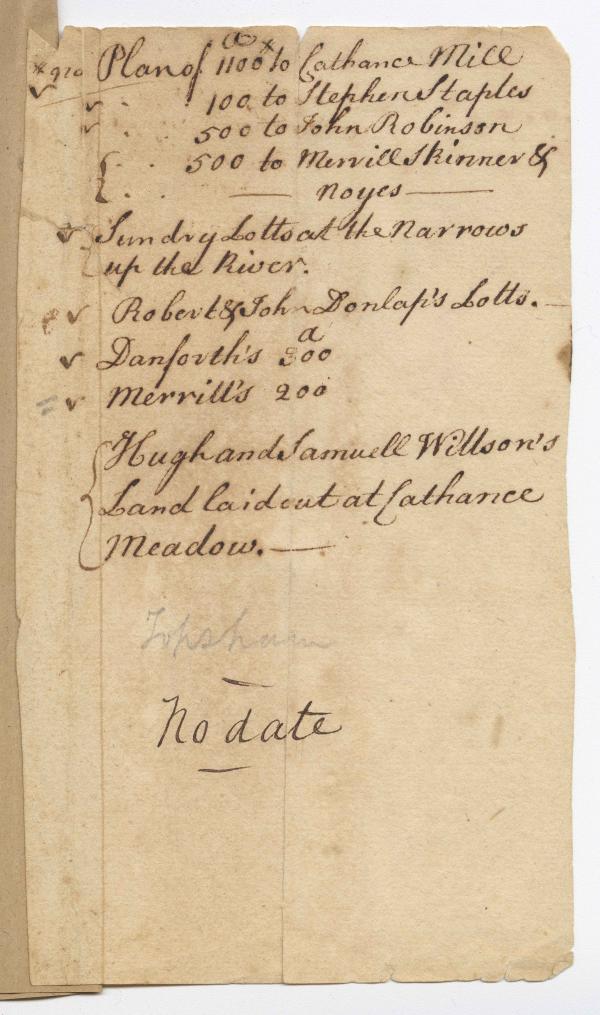 a
x 910 Plan of 1100 x to Cathance Mill
100 to Stephen Staples
500 to John Robinson
500 to Merrill Skinner &
Noyes
Sundry Lotts at the Narrows
up the River.
Robert & John Donlap's Lotts.
a
Danforth's 300
Merrill's 200
Hugh and Samuell Willson's
Land laid out at Cathance
Meadow.
Topsham
No date